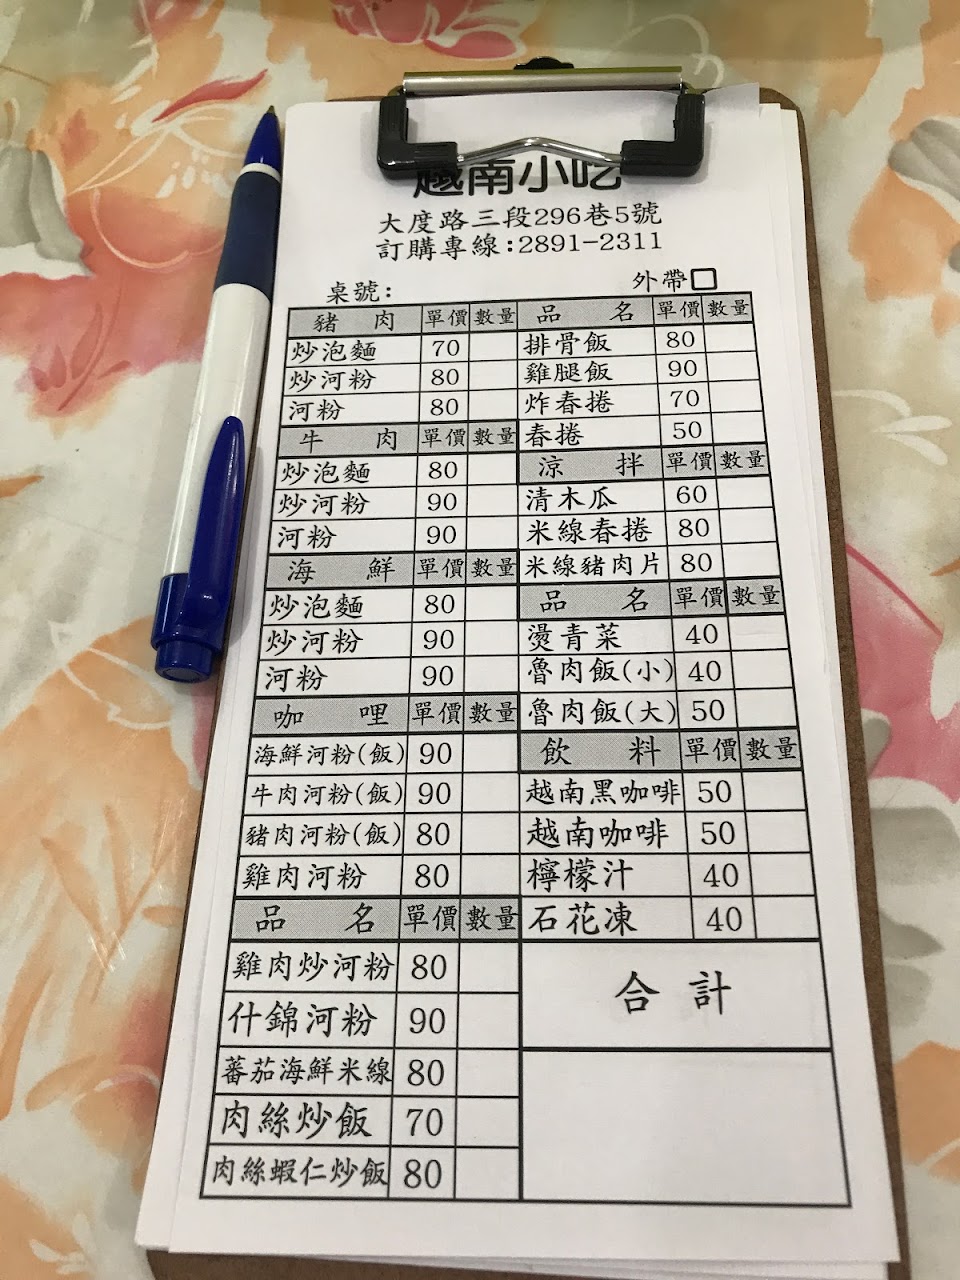 越南小吃
大度路三段296巷5號
訂購專線:2891-2311
桌號:
外帶
豬肉 單價 數量
炒泡麵 70
炒河粉 80
河粉 80
牛肉 單價 數量
炒泡麵 80
炒河粉 90
河粉 90
海鮮 單價 數量
炒泡麵 80
炒河粉 90
河粉 90
咖哩 單價 數量
海鮮河粉(飯) 90
牛肉河粉(飯) 90
豬肉河粉(飯) 80
雞肉河粉 80
品名 單價 數量
雞肉炒河粉 80
什錦河粉 90
蕃茄海鮮米線 80
肉絲炒飯 70
肉絲蝦仁炒飯 80
品名 單價 數量
排骨飯 80
雞腿飯 90
炸春捲 70
春捲 50
涼拌 單價 數量
清木瓜 60
米線春捲 80
米線豬肉片 80
品名 單價 數量
燙青菜 40
魯肉飯(小) 40
魯肉飯(大) 50
飲料 單價 數量
越南黑咖啡 50
越南咖啡 50
檸檬汁 40
石花凍 40
合計